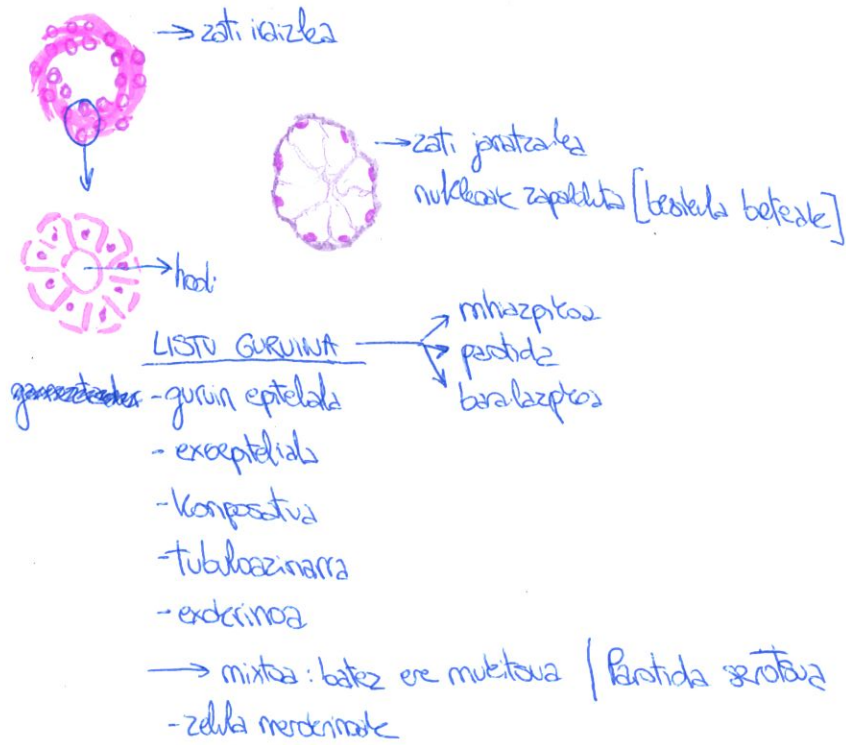 → zati iraizlea
→ zati jariatzailea
nukleoak zapalduta [besikula beteak]
→ hodi
LISTU GURUINA
→ mihiazpikoa
→ parotida
→ barailazpikoa
- guruin epiteliala
- exoepiteliala
- Konposatua
- tubuloazinarra
- exokrinoa
→ mixtoa: batez ere mukitsua / Parotida serotsua
- zelula merokrinoak